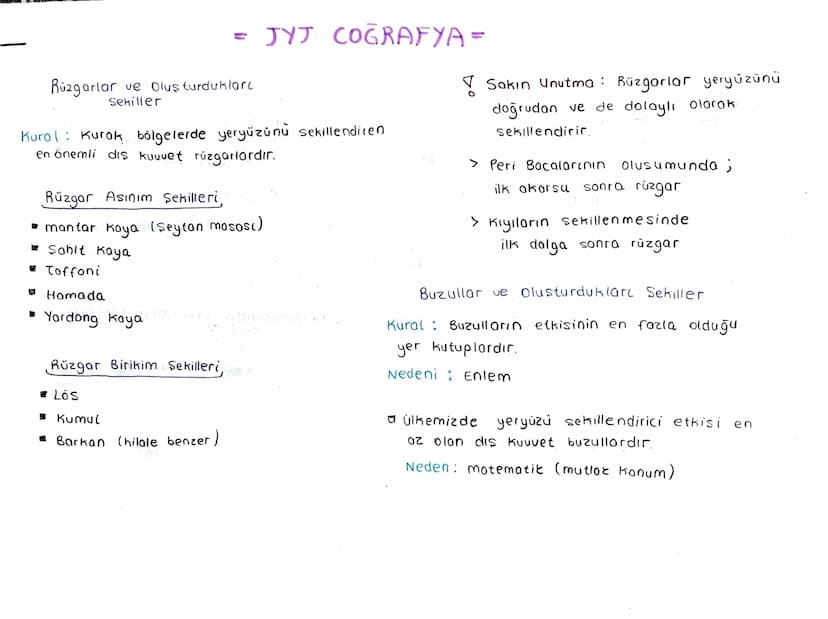 = TYT COĞRAFYA =
Rüzgarlar ve Oluşturdukları
Şekiller
Kural : Kurak bölgelerde yeryüzünü şekillendiren
en önemli dış kuvvet rüzgarlardır.
Rüzgar Aşınım Şekilleri
▪ mantar kaya (Şeytan masası)
▪ Şahit Kaya
▪ Taffoni
▪ Hamada
▪ Yardang Kaya
Rüzgar Birikim Şekilleri
▪ Lös
▪ Kumul
▪ Barkan (hilale benzer)
! Sakın Unutma : Rüzgarlar yeryüzünü
doğrudan ve de dolaylı olarak
şekillendirir.
> Peri Bacalarının oluşumunda ;
ilk akarsu sonra rüzgar
> Kıyıların şekillenmesinde
ilk dalga sonra rüzgar
Buzullar ve Oluşturdukları Şekiller
Kural : Buzulların etkisinin en fazla olduğu
yer kutuplardır.
Nedeni : Enlem
▫ Ülkemizde yeryüzü şekillendirici etkisi en
az olan dış kuvvet buzullardır.
Neden : matematik (mutlak konum)